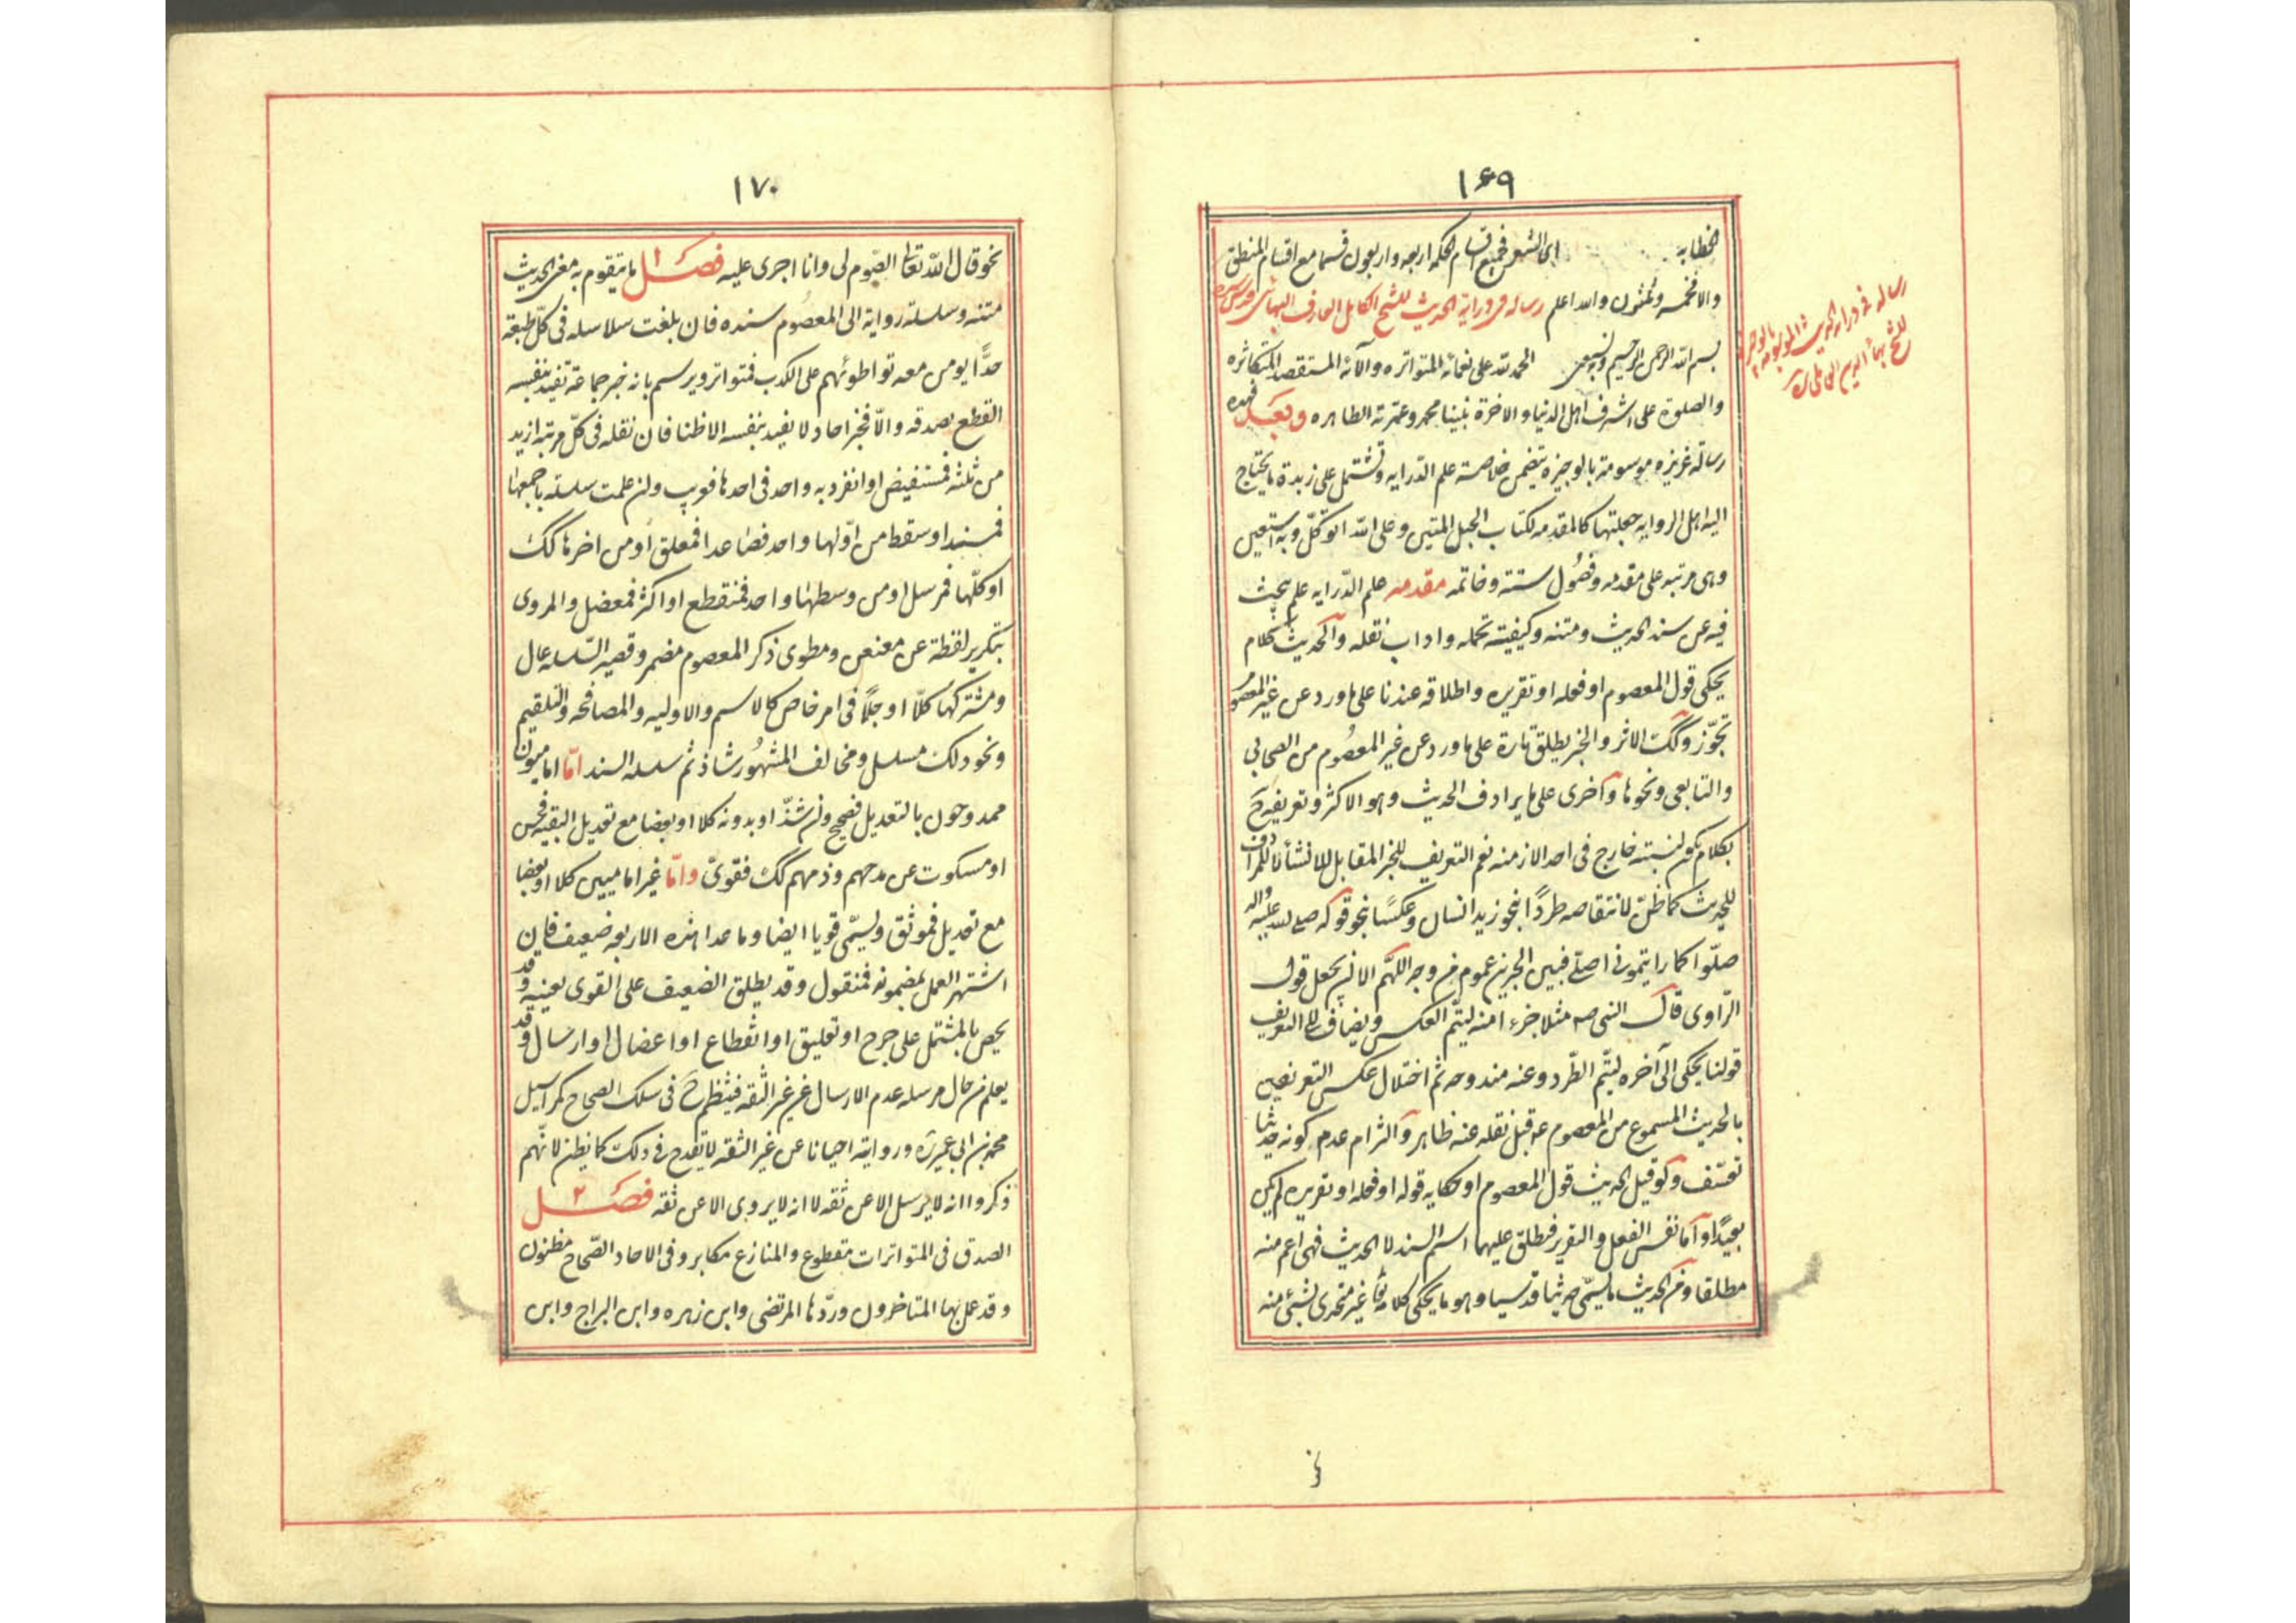 ١٦٩
الخطابة اى الشعر فجميع اقسام الحكمه اربعه واربعون قسما مع اقسام المنطق
والا فخمسه وثلثون والله اعلم رساله فى دراية الحديث للشيخ الكامل العارف البهائى قدس سره
بسم الله الرحمن الرحيم وبه نستعين الحمد لله على نعمائه المتواتره وآلائه المستفيضه المتكاثره
والصلوة على اشرف اهل الدنيا والاخرة نبينا محمد وعترته الطاهره وبعد فهذه
رسالة عزيزه موسومة بالوجيزه تتضمن خلاصة علم الدرايه وتشتمل على زبدة ما يحتاج
اليه اهل الروايه جعلتها كالمقدمه لكتاب الحبل المتين وعلى الله اتوكل وبه استعين
وهى مرتبه على مقدمه وفصول ستة وخاتمه مقدمه علم الدرايه علم يبحث
فيه عن سند الحديث ومتنه وكيفيته تحمله واداب نقله والحديث كلام
يحكى قول المعصوم او فعله او تقريره واطلاقه عندنا على ما ورد عن غير المعصوم
تجوّز وكك الاثر والخبر يطلق تارة على ما ورد عن غير المعصوم من الصحابى
والتابعى ونحوها واخرى على ما يرادف الحديث وهو الاكثر وتعريفه ح
بكلام يكون لنسبته خارج فى احد الازمنه نعم التعريف للخبر المقابل للانشاء لا المرادف
للحديث كما ظن لانتقاضه طردًا بنحو زيد انسان وعكسًا بنحو قوله صلى الله عليه واله
صلّوا كما رايتمونى اصلى فبين الخبرين عموم من وجه اللهم الا ان يجعل قول
الرّاوى قال النبى صه مثلا جزءا منه ليتم العكس ويضاف الى التعريف
قولنا يحكى الى آخره ليتم الطّرد وعنه مندوحه ثم اختلال عكس التعريفين
بالحديث المسموع من المعصوم ع قبل نقله عنه ظاهر والتزام عدم كونه حديثا
تعسّف ولو قيل الحديث قول المعصوم او حكاية قوله او فعله او تقريره لم يكن
بعيدًا واما نفس الفعل والتقرير فيطلق عليهما اسم السند لا الحديث فهى اعم منه
مطلقا ومن الحديث ما يسمّى حديثا قدسيا وهو ما يحكى كلامه تعالى غير متحدى بشئ منه
رساله فى دراية الحديث الموسومة بالوجيزه
للشيخ بهاء الدين العاملى ره
نحو
١٧٠
نحو قال الله تعالى الصّوم لى وانا اجرى عليه فصل ١ ما يتقوم به معنى الحديث
متنه وسلسلة رواية الى المعصوم سنده فان بلغت سلاسله فى كلّ طبقه
حدًّا يومن معه تواطوئهم على الكذب فمتواتر ويرسم بانه خبر جماعة تفيد بنفسه
القطع بصدقه والّا فخبر احاد لا يفيد بنفسه الا ظنا فان نقله فى كلّ مرتبه ازيد
من ثلثه فمستفيض او انفرد به واحد فى احدها فغريب وان علمت سلسلته باجمعها
فمسند او سقط من اوّلها واحد فصاعدا فمعلق او من اخرها كك
او كلّها فمرسل او من وسطهٰا واحد فمنقطع او اكثر فمعضل والمروى
بتكرير لفظة عن معنعن ومطوى ذكر المعصوم مضمر وقصير السّلسله عال
ومشتركها كلّا او جلّا فى امر خاص كالاسم والاوليه والمصافحه والتلقيم
ونحو ذلك مسلسل ومخالف المشهُور شاذ ثم سلسله السند امّا اماميون
ممدوحون بالتعديل فصحيح وان شذّ او بدونه كلا او بعضا مع تعديل البقيه فحسن
او مسكوت عن مدحهم وذمهم كك فقوىّ وامّا غير اماميين كلا او بعضا
مع تعديل فموثق ويسمّى قويا ايضا وما عدا هذه الاربعه ضعيف فان
اشتهر العمل بمضمونه فمقبول وقد يطلق الضعيف على القوى بمعنييه وقد
يخص بالمشتمل على جرح او تعليق او انقطاع او اعضال او ارسال وقد
يعلم من حال مرسله عدم الارسال عن غير الثّقه فينظم ح فى سلك الصحاح كمراسيل
محمد بن ابى عمير ره وروايته احيانا عن غير الثقه لا تقدح فى ذلك كما يظن لانّهم
ذكروا انه لا يرسل الا عن ثقه لا انه لا يروى الا عن ثقه فصل ٢
الصدق فى المتواترات مقطوع والمنازع مكابر وفى الاحاد الصّحاح مظنون
وقد عمل بها المتاخرون وردّها المرتضى وابن زهره وابن البراج وابن